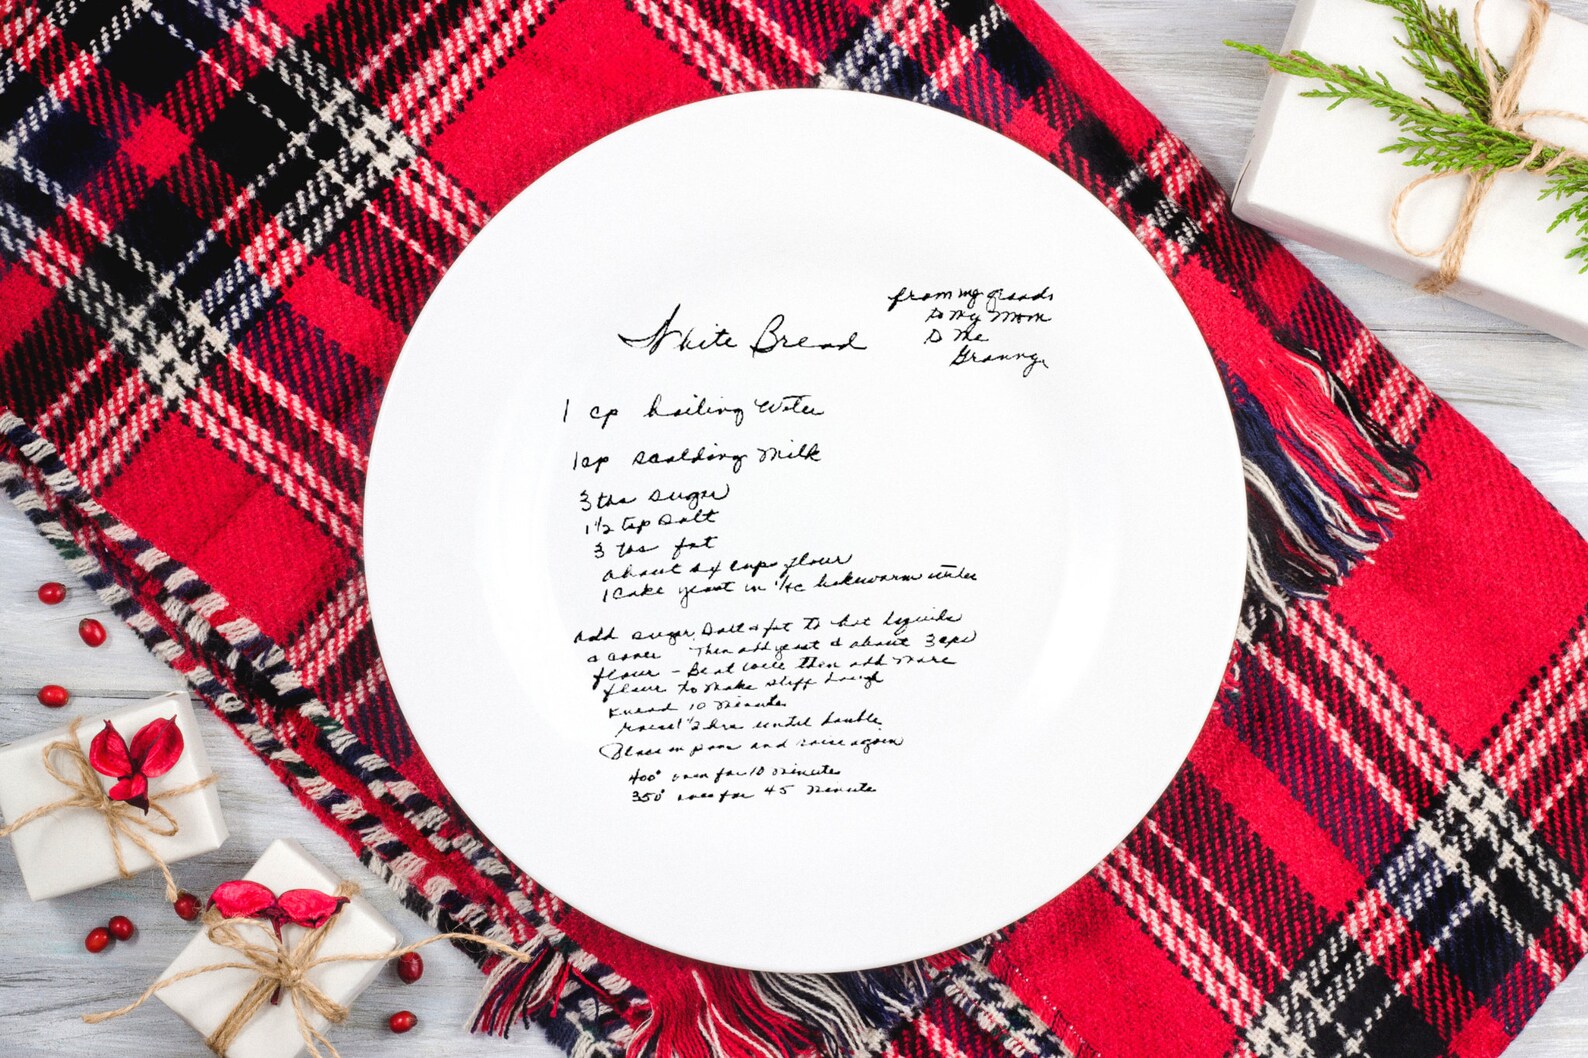 White Bread
from my grands
to my Mom
to me
Granny
1 cp boiling Water
1 cp scalding Milk
3 tbs sugar
1 1/2 tsp Salt
3 tbs fat
about six cups flour
1 cake yeast in 1/4 c lukewarm water
Add sugar, Salt & fat to hot liquids
& cover Then add yeast & about 3 cps
flour - Beat well then add More
flour to Make stiff dough
Knead 10 Minutes
raise 1 1/2 hrs until double
Place in pans and raise again
400° oven for 10 Minutes
350° oven for 45 Minutes